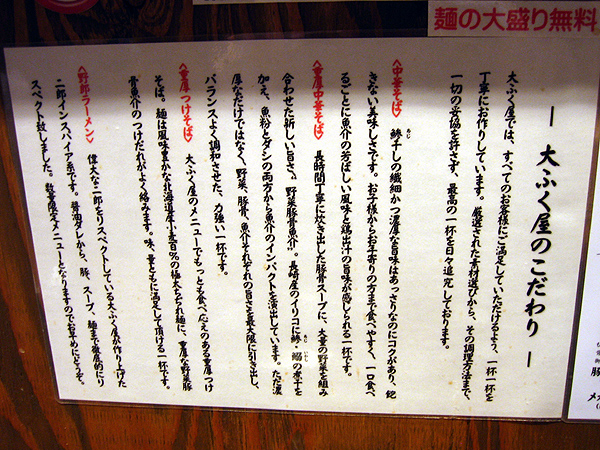 麺の大盛り無料
― 大ふく屋のこだわり ―
大ふく屋では、すべてのお客様にご満足していただけるよう、一杯一杯を
丁寧にお作りしています。厳選された素材選びから、その調理方法まで、
一切の妥協を許さず、最高の一杯を日々追究しております。
〈中華そば〉 鯵干しの繊細かつ濃厚な旨味はあっさりなのにコクがあり、飽
きない美味しさです。お子様からお年寄りの方まで食べやすく、一口食べ
るごとに魚介の芳ばしい風味と鶏出汁の旨味が感じられる一杯です。
〈重厚中華そば〉 長時間丁寧に炊き出した豚骨スープに、大量の野菜を組み
合わせた新しい旨さ。野菜豚骨魚介。長崎産のイリコに鯵、鰯の煮干を
加え、魚粉とダシの両方から魚介のインパクトを演出しています。ただ濃
厚なだけではなく、野菜、豚骨、魚介それぞれの旨さを最大限に引き出し、
バランスよく調和させた、力強い一杯です。
〈重厚つけそば〉 大ふく屋のメニューでもっとも食べ応えのある重厚つけ
そば。麺は風味豊かな北海道産小麦百%の極太ちぢれ麺に、重厚な野菜豚
骨魚介のつけだれがよく絡みます。味、量ともに満足して頂ける一杯です。
〈野郎ラーメン〉 偉大な二郎をリスペクトしている大ふく屋が作り上げた
二郎インスパイア系です。醤油ダレから、豚、スープ、麺まで徹底的にリ
スペクト致しました。数量限定メニューとなりますのでお早めにどうぞ。